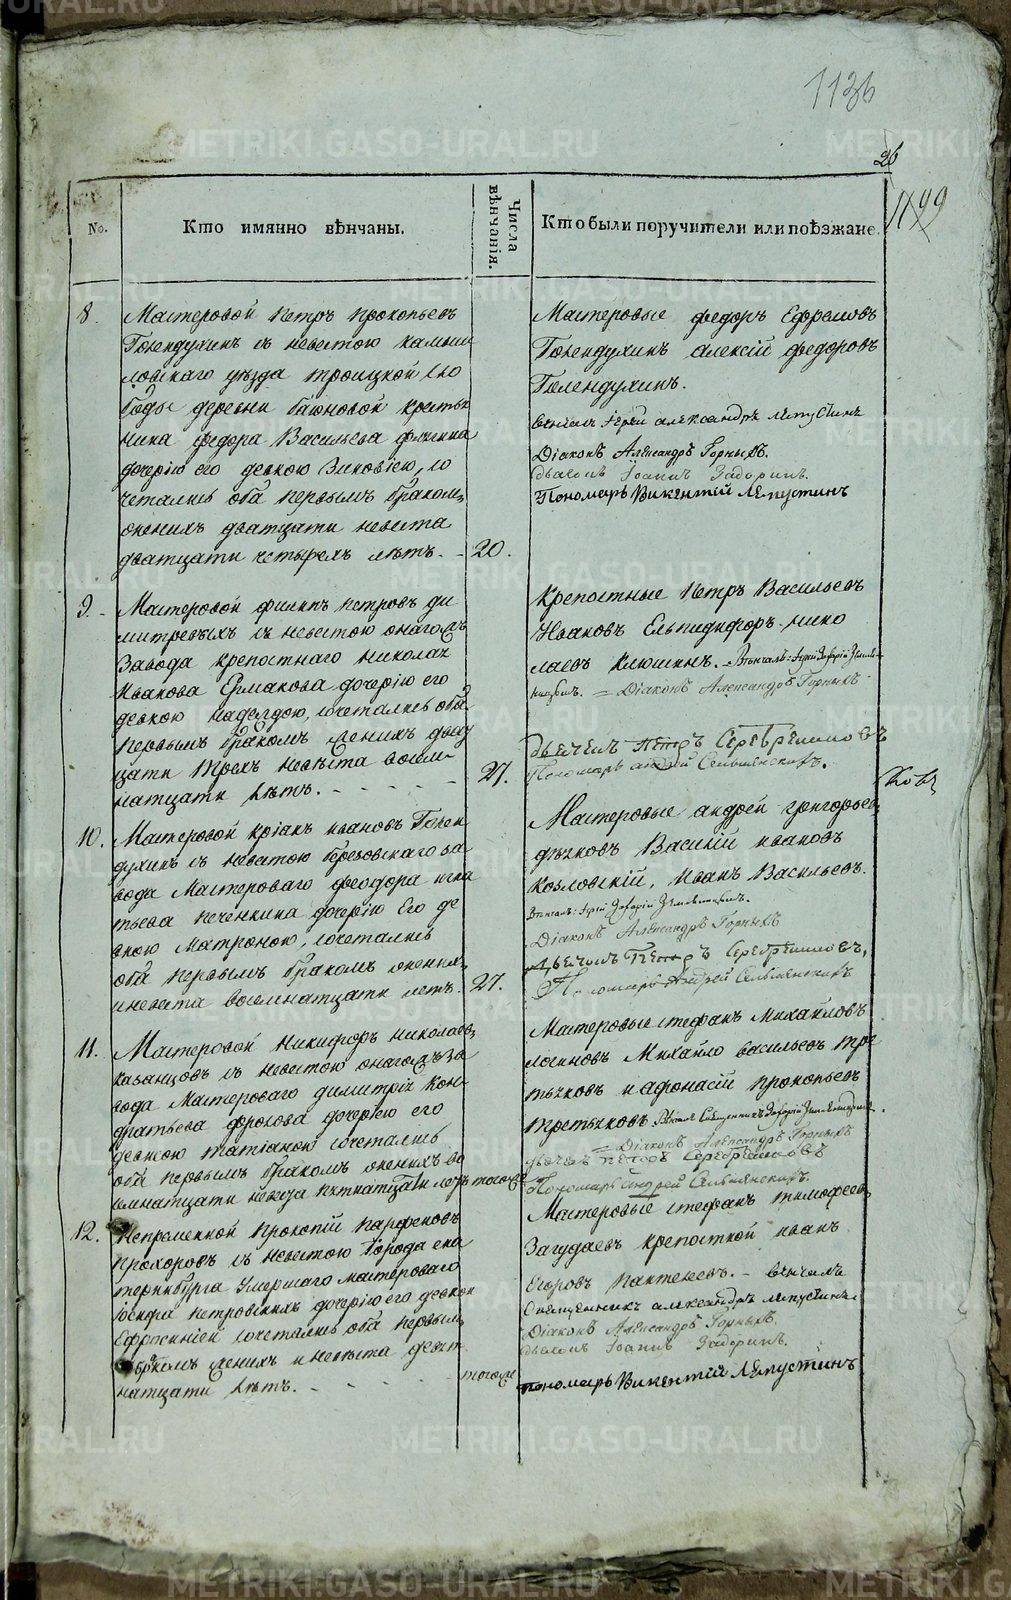 1136
26
1199
No.
Кто имянно вѣнчаны.
Числа вѣнчанія.
Кто были поручители или поѣзжане.
8.
Мастеровой Петръ Прокопьевъ
Голендухинъ съ невестою камыш
ловскаго уѣзда троицкой сло
боды деревни крестья
нина федора Васильева
дочерію его девкою Зиновіею, со
четались оба первымъ бракомъ
женихъ дватцати невеста
дватцати четырехъ лѣтъ. -
20.
Мастеровые федоръ Ефремовъ
Голендухинъ алексій федоровъ
Голендухинъ.
венчалъ Іерей александръ лепустинъ
Діаконъ Александръ Горныхъ.
дьячокъ Іоаннъ Задоринъ.
Пономарь Викентій Лепустинъ
9. -
Мастеровой филипъ петровъ ди
митревыхъ съ невестою онагожъ
Завода крепостнаго николая
Иванова Ермакова дочерію его
девкою надеждою, сочетались оба
первымъ бракомъ женихъ двад
цати трехъ невѣста восем
натцати лѣтъ. - - - - -
27.
Крепостные Петръ Васильевъ
Ивановъ Елпидифоръ нико
лаевъ клюшинъ. - Вѣнчалъ: Іерей Захарій Земля-
ницынъ. = Діаконъ Александръ Горныхъ
дьячекъ Петръ Серебренниковъ
Пономарь андрей Сельменскихъ.
10.
Мастеровой кріакъ ивановъ Голен
духинъ съ невестою березовскаго за
вода Мастероваго феодора игна
тьева печенкина дочерію его де
вкою Матроною, сочетались
оба первымъ бракомъ женихъ
и невеста восемнатцати летъ.
27.
Мастеровые андрей григорьевъ
дьячковъ Василій ивановъ
козловскій, Иванъ Васильевъ.
Вѣнчалъ: Іерей Захарій Земляницынъ.
Діаконъ Александръ Горныхъ
Дьячокъ Петръ Серебренниковъ,
Пономарь Андрей Сельменскихъ
11.
Мастеровой Никифоръ николаевъ
казанцовъ съ невестою онагожъ за
вода Мастероваго димитрія кон
дратьева фролова дочерію его
девкою татіаною сочетались
оба первымъ бракомъ женихъ во
семнатцати невеста пятнатцати летъ
тогоже
Мастеровые стефанъ Михайловъ
логиновъ Михайло васильевъ тре
тьяковъ и афонасій прокопьевъ
третьяковъ Вѣнчалъ Священникъ Захарій Земляницынъ.
= Діаконъ Александръ Горныхъ
дьячекъ Петръ Серебренниковъ
Пономарь андрей Сельменскихъ.
12.
Непременной Прокопій парфеновъ
прохоровъ съ невестою города ека
теринбурга Умершаго мастероваго
іосифа петровскихъ дочерію его девкою
Ефросиніей сочетались оба первымъ
бракомъ женихъ и невѣста девят
натцати лѣтъ. - - - -
тогоже
Мастеровые стефанъ тимофеевъ
Загудаевъ крепостной иванъ
Егоровъ пантелеевъ. - венчалъ
Священникъ александръ лепустинъ
Діаконъ Александръ Горныхъ.
дьячокъ Іоаннъ Задоринъ.
пономарь Викентій Лепустинъ